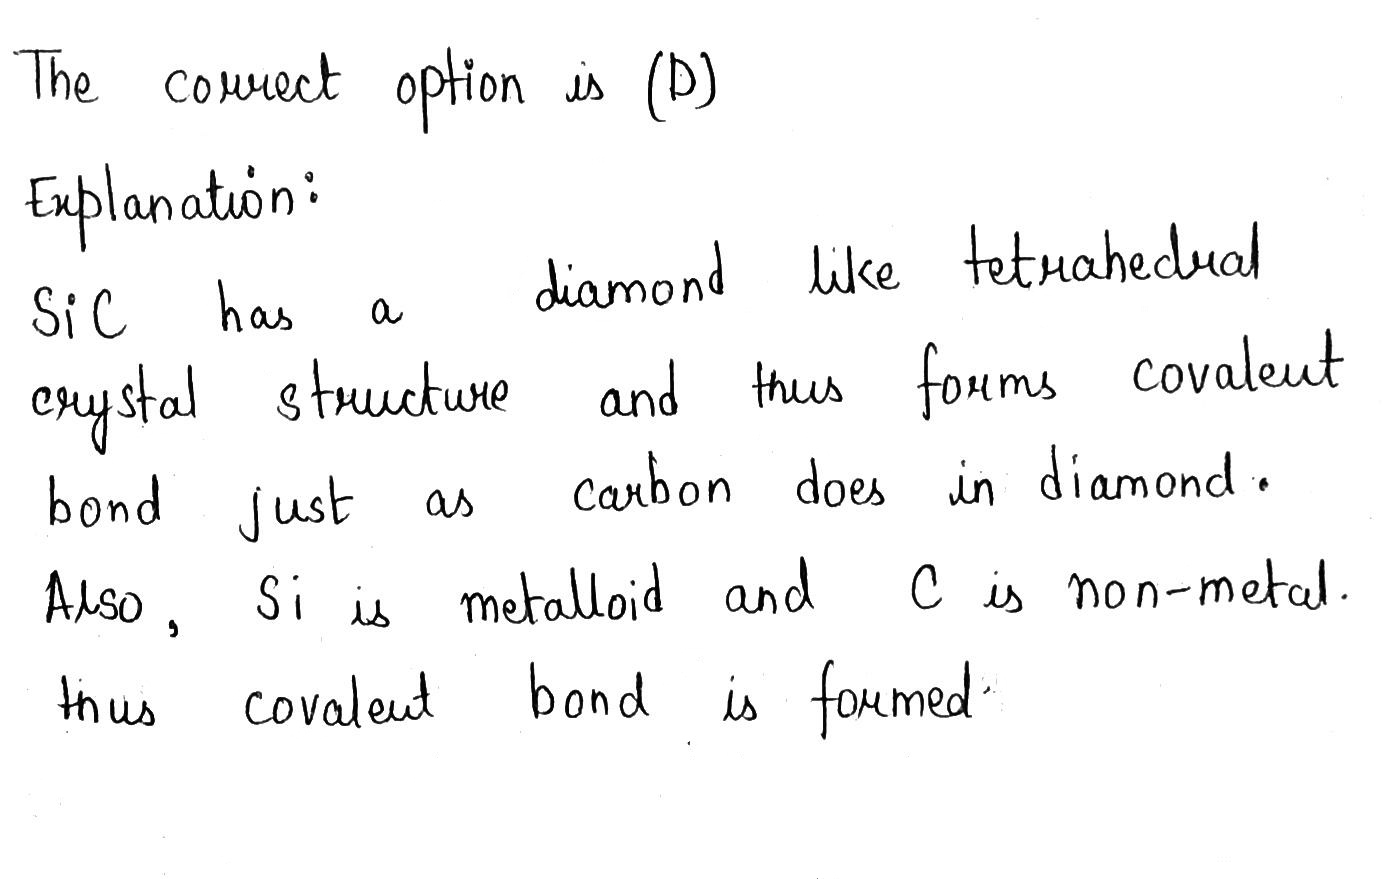 The correct option is (D)
Explanation:
SiC has a diamond like tetrahedral
crystal structure and thus forms covalent
bond just as carbon does in diamond.
Also, Si is metalloid and C is non-metal.
thus covalent bond is formed.